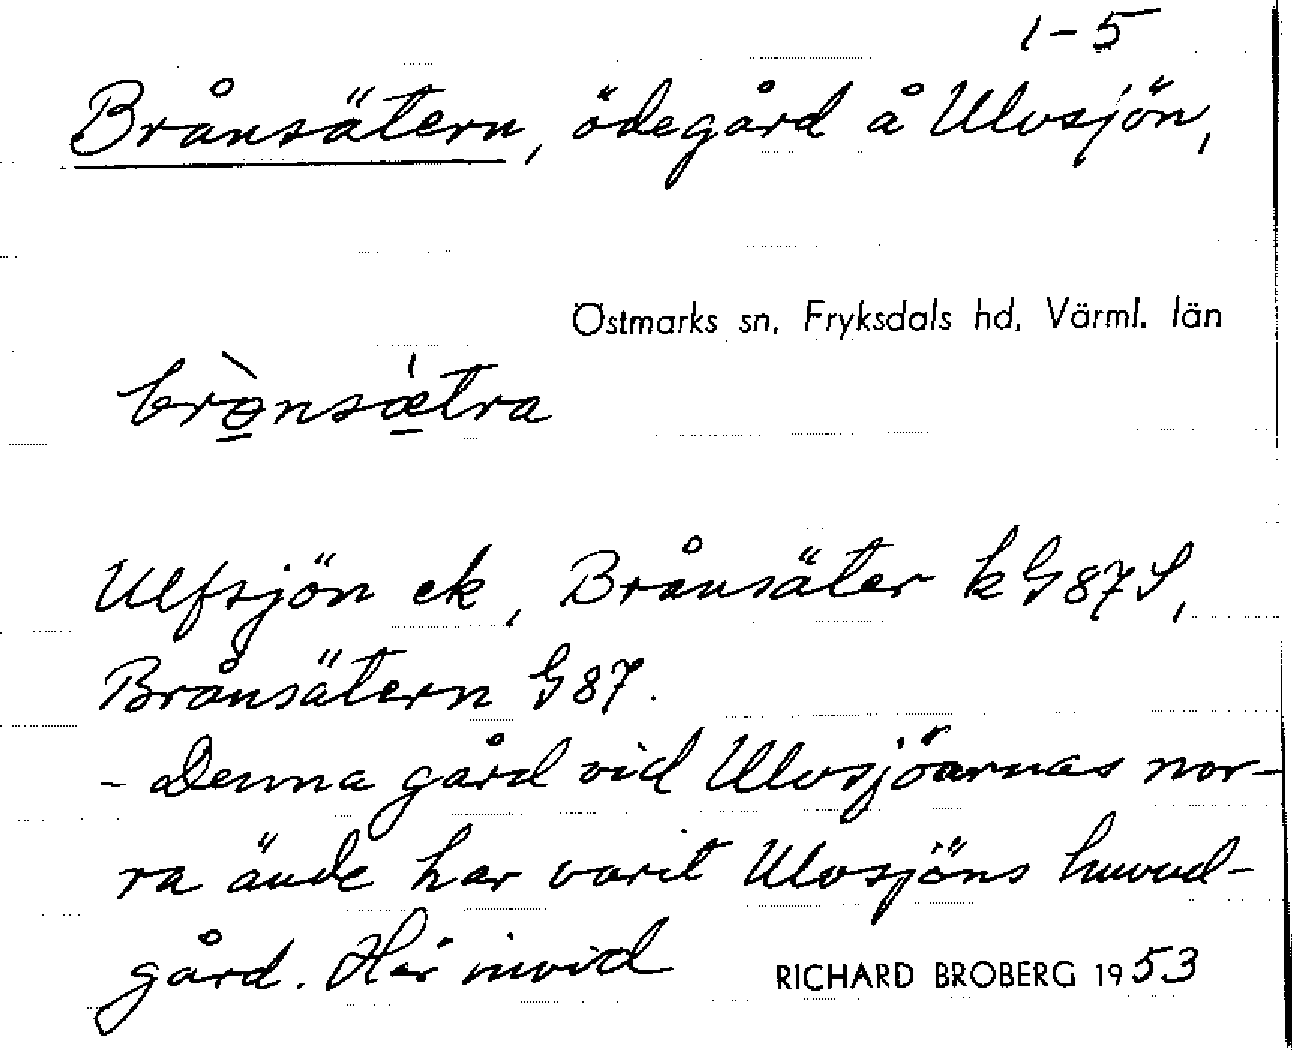 1-5
Brånsätern, ödegård å Ulvsjön,
Östmarks sn. Fryksdals hd. Värml. län
brə̀nsǽtra
Ulfsjön ek, Brånsäter k G87S,
Brånsätern G87.
- Denna gård vid Ulvsjöarnas nor-
ra ände har varit Ulvsjöns huvud-
gård. Här invid
RICHARD BROBERG 1953